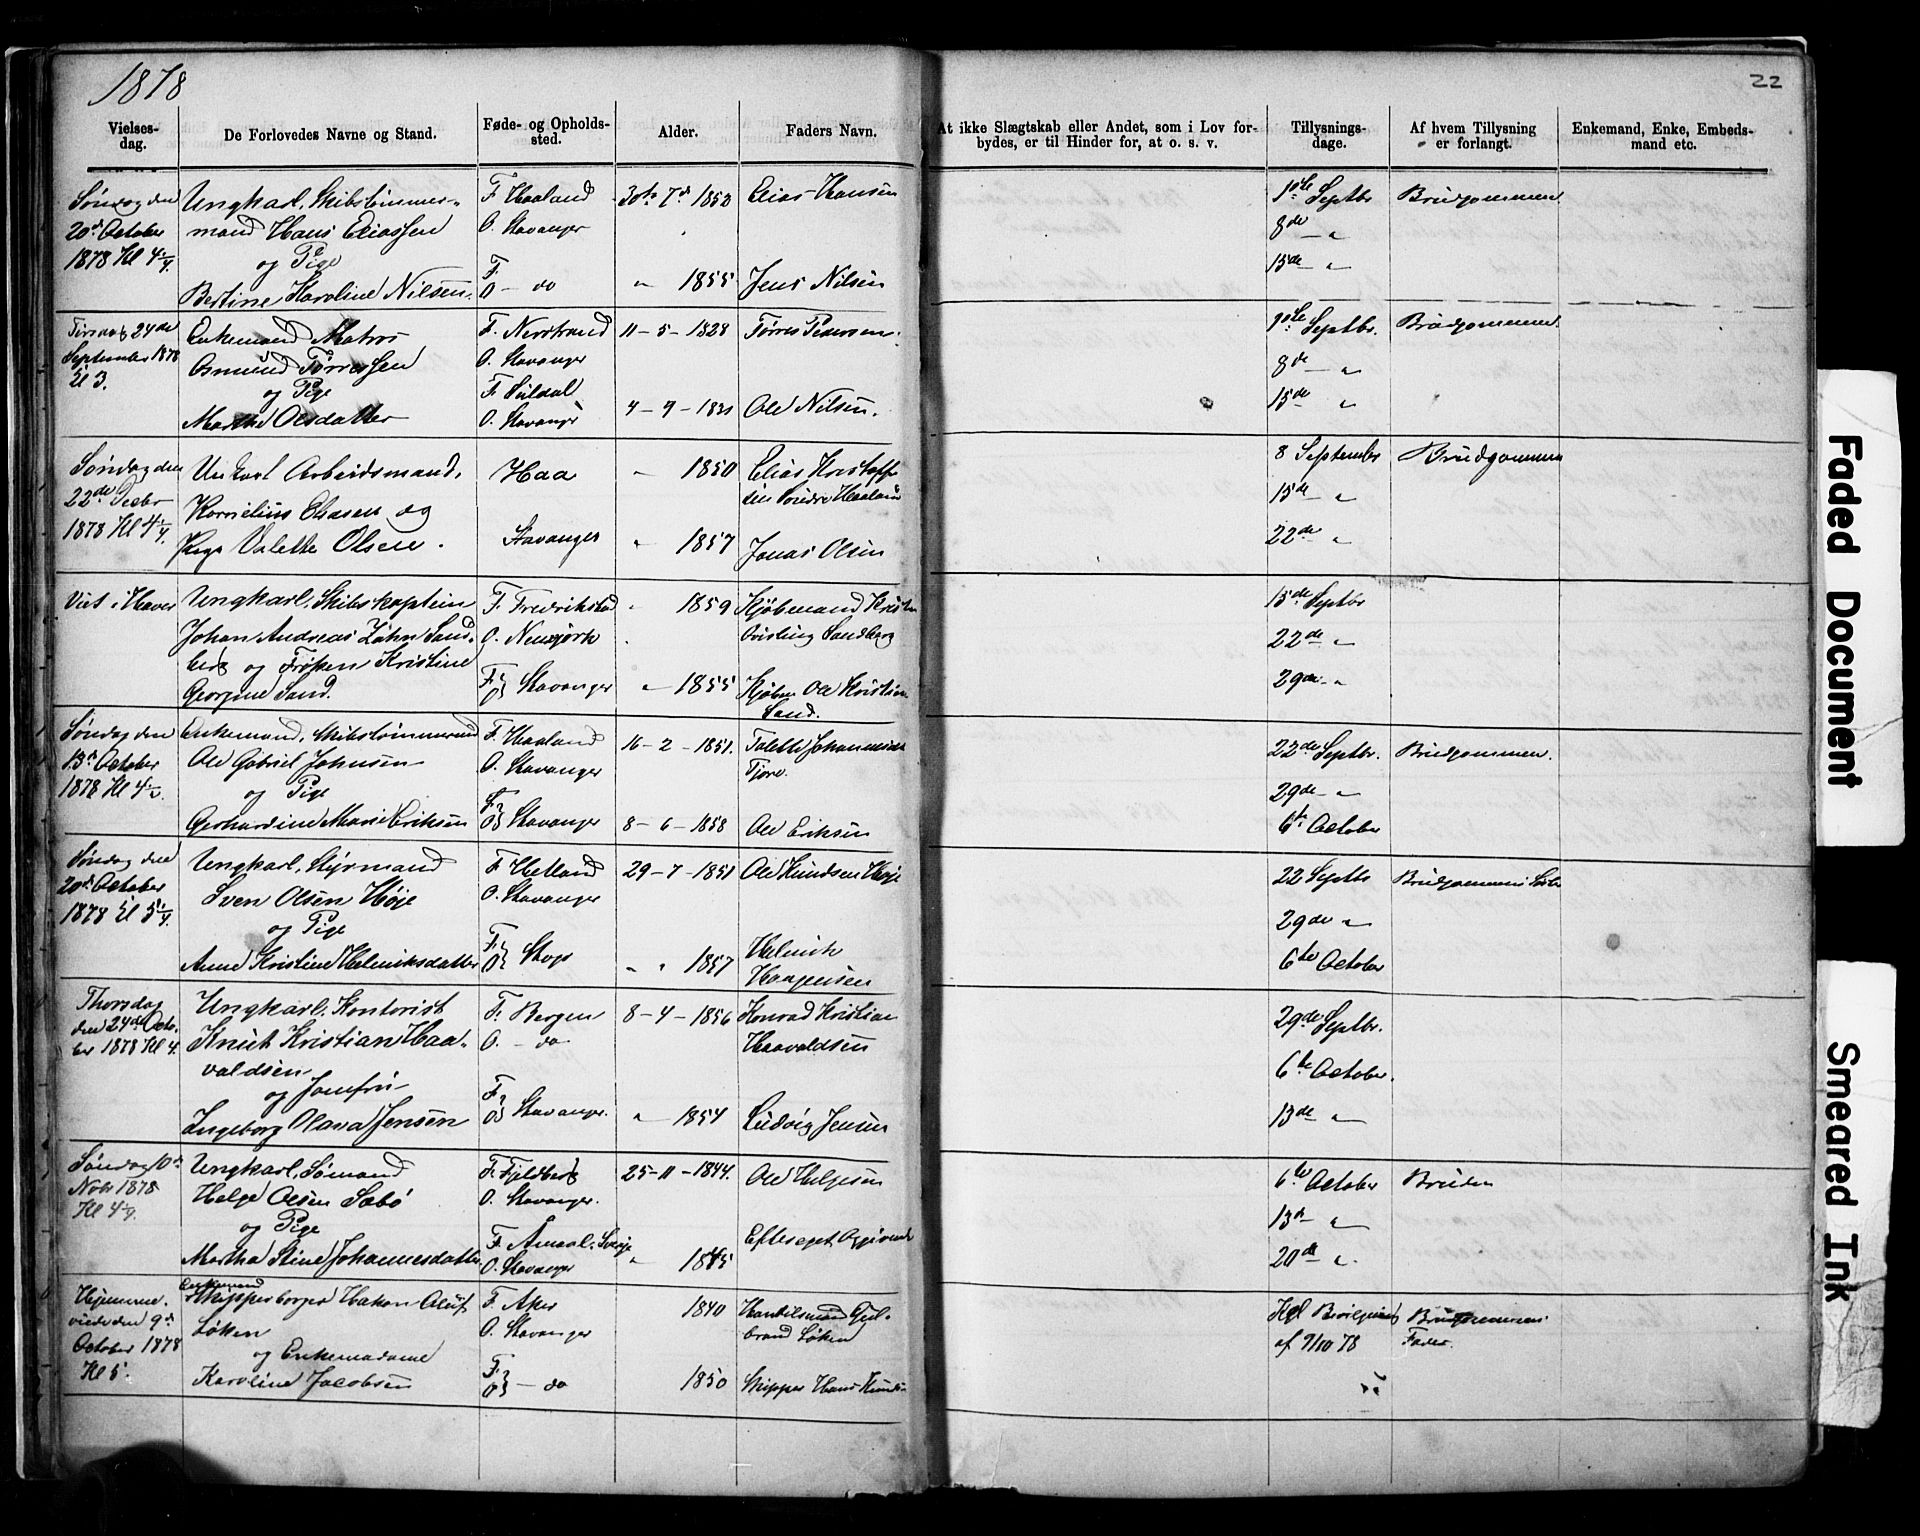 1878
22
Vielses-
dag.
De Forlovedes Navne og Stand.
Føde- og Opholds-
sted.
Alder.
Faders Navn.
At ikke Slægtskab eller Andet, som i Lov for-
bydes, er til Hinder for, at o. s. v.
Tillysnings-
dage.
Af hvem Tillysning
er forlangt.
Enkemand, Enke, Embeds-
mand etc.
Søndag den
20d October
1878 Kl 4 1/4.
Ungkarl, Skibstimmer-
mand Hans Eliassen
og Pige
Bertine Karoline Nilsen.
F. Haaland
O. Stavanger
F.
O — do
1853
" 1855
Elias Hansen
Jens Nilsen
1ste Septbr
8de — "
15de — "
Brudgommen
Tirsdag 24de
September 1878
Kl 3.
Enkemand Matros
Osmund Tørressen
og Pige
Marthe Olsdatter
F. Nerstrand
O. Stavanger
F. Suldal
O. Stavanger
11 - 5 - 1828
4 - 9 -
Tørres Pedersen.
Ole Nilsen.
1ste Septbr.
8de — "
15de "
Brudgommen
Søndag den
22de
1878 Kl 4 1/4.
Ungkarl Arbeidsmand.
Kornelius Eliasen og
Pige Valette Olsen.
Haa
Stavanger
" 1850
" 1857
Elias Kristoffer
sen Søndre Haaland
Jonas Olsen
8 September
15de "
22de "
Brudgommen
Viet i Haver
Ungkarl, Skibskaptein
Johan Andreas Zahn Sand-
berg og Frøken Kristine
Georgine Sand.
F. Fredrikstad
O. Newyork
F. O } Stavanger
" 1859
" 1855
Kjøbmand Kristen
Sandberg
Kjøbm Ole Kristian
Sand.
15de Septbr
22de "
29de - "
Søndag den
13d October
1878 Kl 4 1/2.
Enkemand, Skibstømmermand
Ole Gabriel Johnsen
og Pige
Gerhardine Marie Eriksen
F. Haaland
O. Stavanger
F. O } Stavanger
16 - 2 - 1851.
8 - 6 - 1858
Ole Eriksen
22de Septbr.
29de — "
6te October
Brudgommen.
Søndag den
20d October
1878 Kl 5 1/4.
Ungkarl, Styrmand
Sven Olsen Høje
og Pige
Anne Kristine Helmiksdatter
F. Hetland
O. Stavanger
F. O }
29 - 7 - 1851
" " 1857
Ole Knudsen Høje
Haagensen
22 Septbr
29de "
6te October
Brudgommens
Thorsdag
den 24de Octo-
ber 1878 Kl 4.
Ungkarl, Kontorist
Knut Kristian Haa-
valdsen
og Jomfru
Ingeborg Olava Jensen
F. Bergen
O. — do
F. O } Stavanger.
8 - 4 - 1856
" 1854
Konrad Kristian
Haavaldsen
Ludvig Jensen
29de Septbr.
6te October.
13de "
Søndag 10d
Nobr 1878
Kl 4 1/4.
Ungkarl, Sømand
Helge Olsen Sæbø
og Pige
Martha Stine Johannesdatter
F. Fjeldberg
O. Stavanger.
F. Åmaal, Sverige
O. Stavanger
25 - 11 - 1844.
" 1845
Ole Helgesen
Efter eget Opgivende
6te October
13d "
20de "
Bruden
Hjemme-
viede den 9d
October 1878
Kl 5.
Enkemand
Skipperborger Hakon Oluf
Løken
og Enkemadame
Karoline Jacobsen
F. Aker
O. Stavanger
F. O } — do
1840
1850
Handelsmand Gul-
brand Løken
Skipper Hans Knudsen
Kgl Bevilgning
af 7/10 78
Brudgommens
Fader.
Faded Document
Smeared Ink